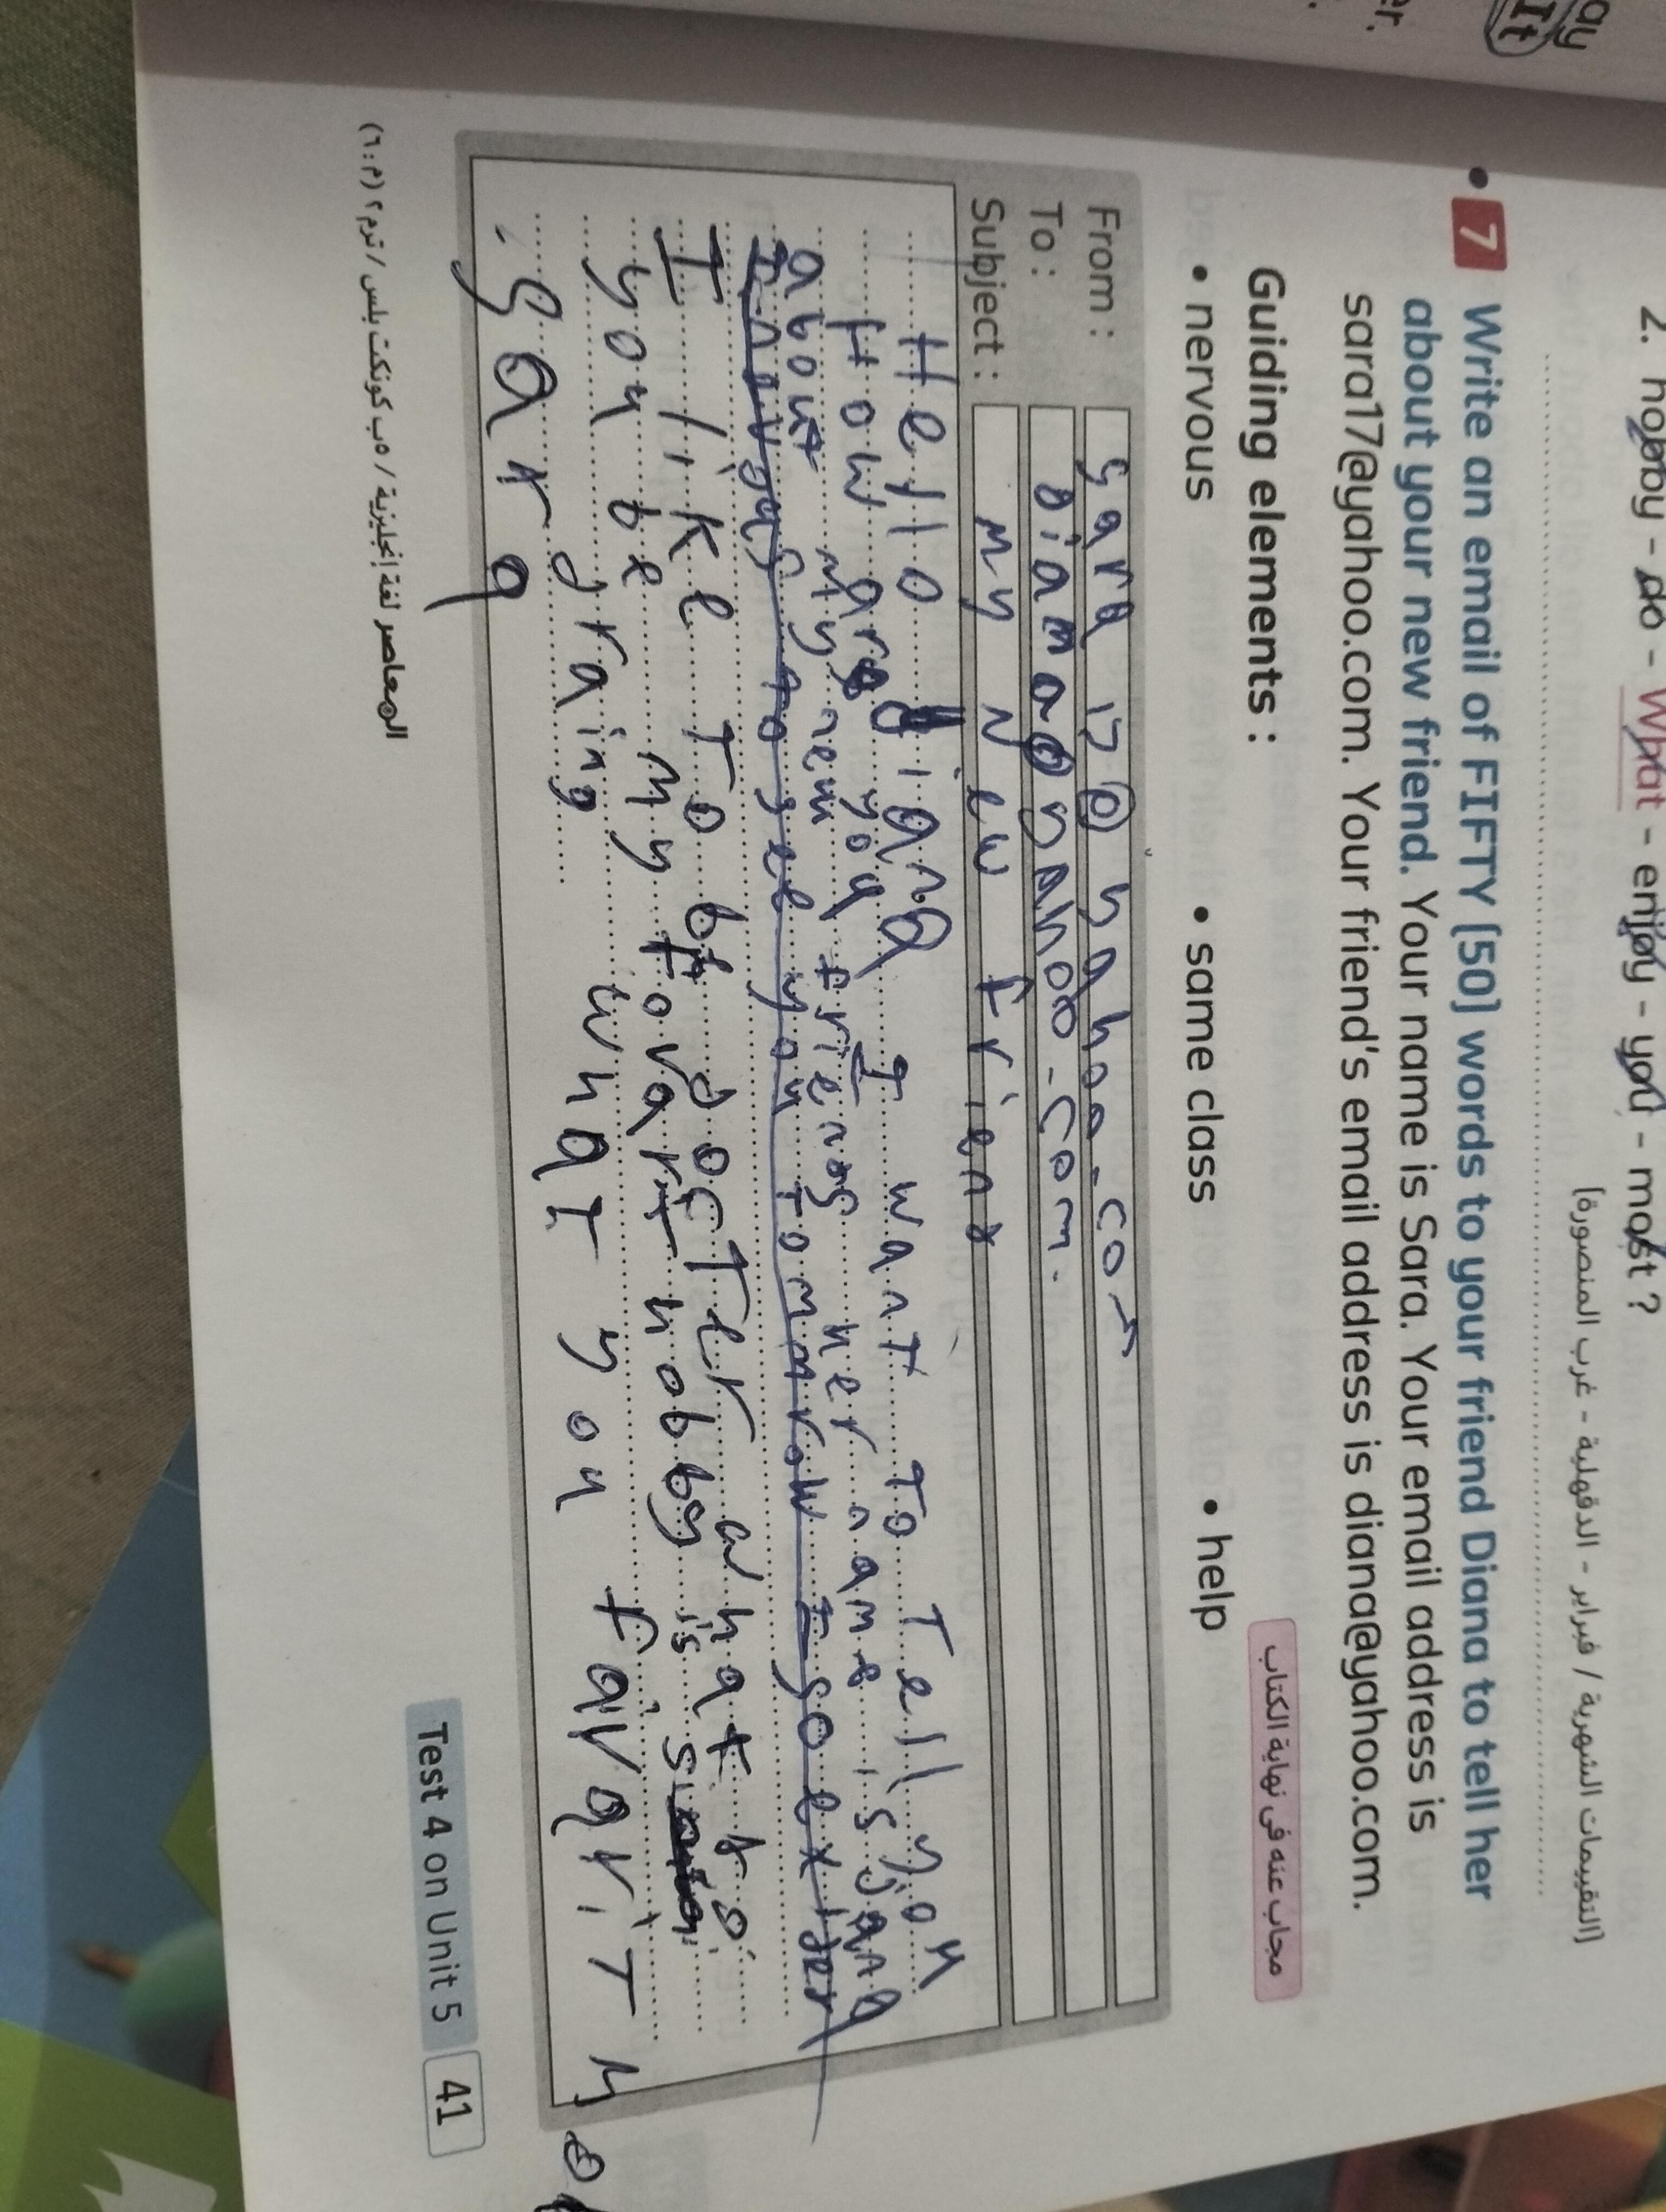 ay
It
er.
2. hobby - do - What - enjoy - you - most ?
(التقييمات الشهرية / فبراير - الدقهلية - غرب المنصورة)
• 7 Write an email of FIFTY (50) words to your friend Diana to tell her
about your new friend. Your name is Sara. Your email address is
sara17@yahoo.com. Your friend's email address is diana@yahoo.com.
مجاب عنه فى نهاية الكتاب
Guiding elements :
• nervous • same class • help
From : sara 17@yahoo.com
To : diana@yahoo.com.
Subject : My New friend
Hello diana
How are you I want To Tell you
about My new friend her name is
I nervous to see you Tomorrow I so
I like To be docTer what
you be My hobby is
draing what you
Sara
المعاصر لغة إنجليزية / ٥ب كونكت بلس / ترم ٢ (م : ٦)
Test 4 on Unit 5 41